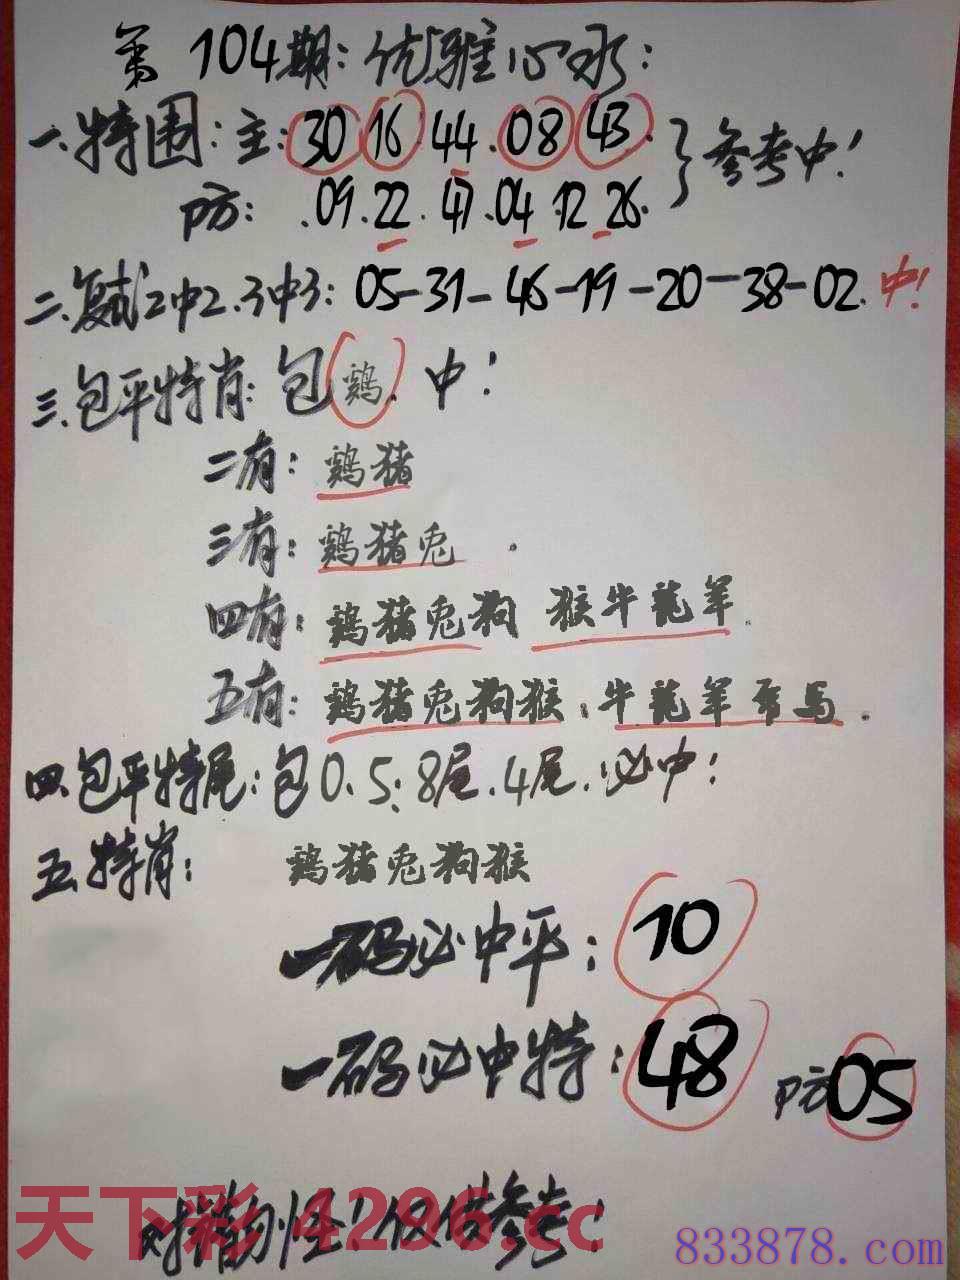 第104期:优雅心水:
一.特围:主:30.16.44.08.43.}参考中!
防:.09.22.47.04.12.26.
二.复式2中2.3中3:05-31-46-19-20-38-02.中!
三.包平特肖:包鸡.中!
二有:鸡猪
三有:鸡猪兔.
四有:鸡猪兔狗 猴牛龍羊.
五有:鸡猪兔狗猴:牛龍羊 马.
四.包平特尾:包0.5:8尾.4尾.必中!
五.特肖:鸡猪兔狗猴
一码必中平:10
一码必中特:48 防05
天下彩 4296.cc
对错勿怪!仅供参考!
833878.com